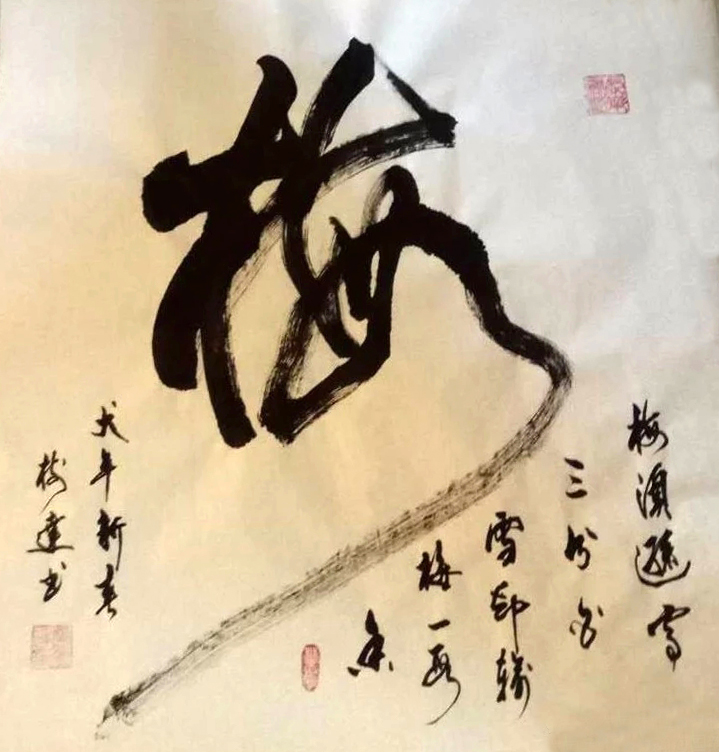 梅
梅須遜雪
三分白
雪却輸
梅一段
香
犬年新春
樹達书